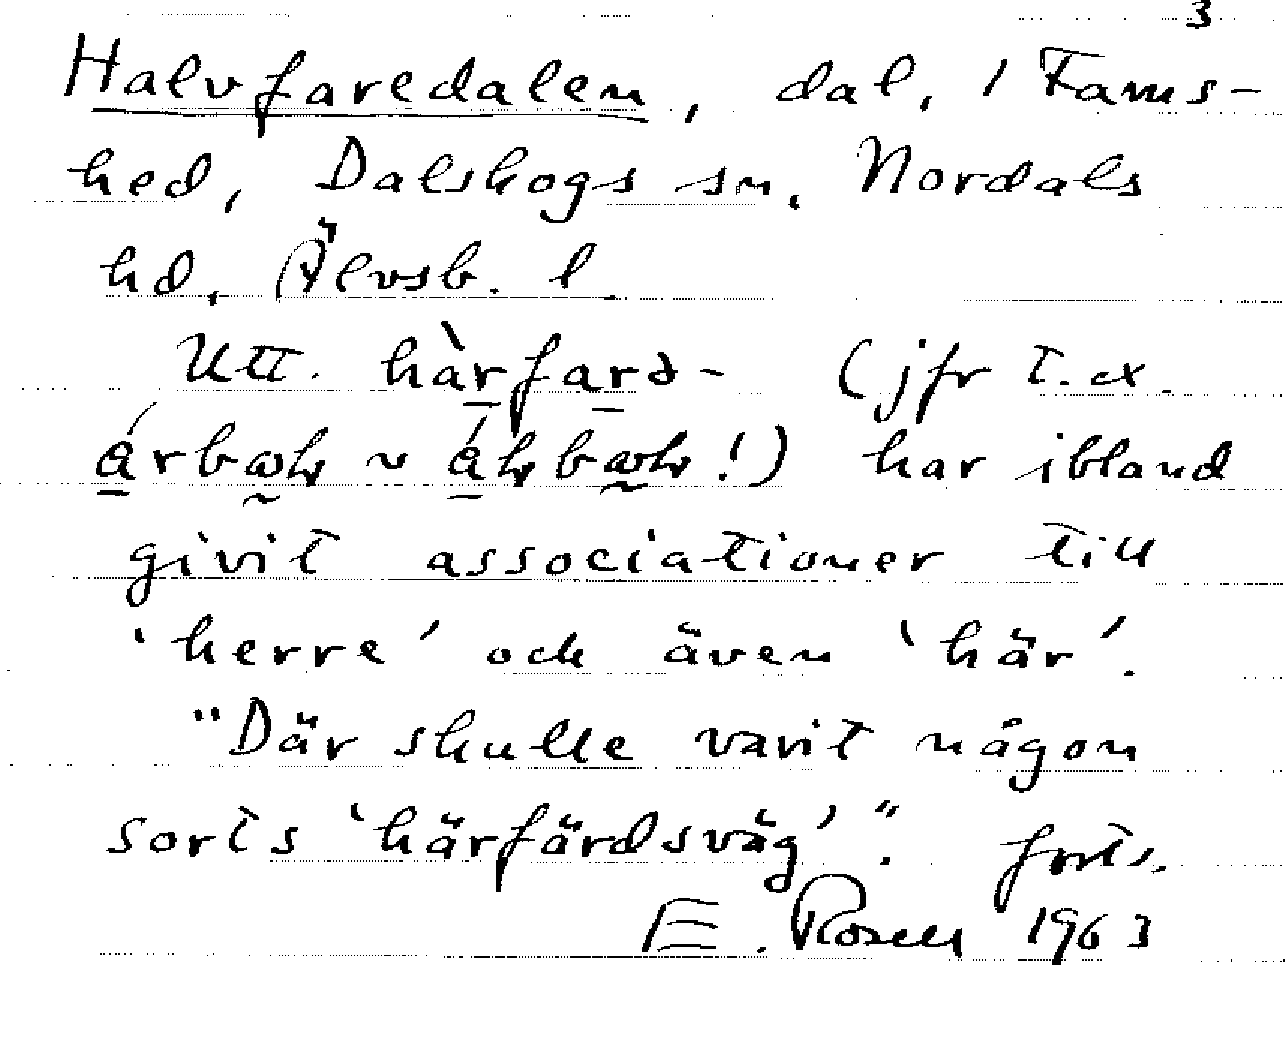 3
Halvfaredalen, dal, i Fams-
hed, Dalskogs sn. Nordals
hd, Älvsb. l
Utt. hàrfarə- (jfr t.ex.
har ibland
givit associationer till
'herre' och även 'här'.
"Där skulle varit någon
sorts 'härfärdsväg'". forts.
E. Rosell 1963